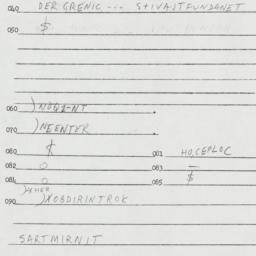 040 DER GRENIC --- STIVAJTFUNDANET
050 $
060 )NOQ1-NT .
070 )NEENTER .
080 $ 081 HO,CEPLOC
082 0 083 —
084 0 085 $
)XHER
090 )XOBDIRINTROK
SARTMIRNIT